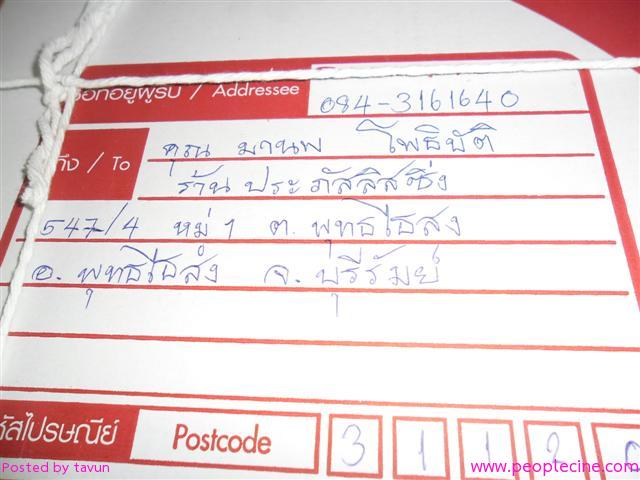 ชื่อที่อยู่ผู้รับ / Addressee 084-3161640
ถึง / To คุณ มานพ โพธิบัติ
ร้าน ประภัสลิสซิ่ง
547/4 หมู่ 1 ต. พุทธไธสง
อ. พุทธไธสง จ. บุรีรัมย์
รหัสไปรษณีย์ Postcode 3 1 1 2 0
Posted by tavun
www.peoplecine.com